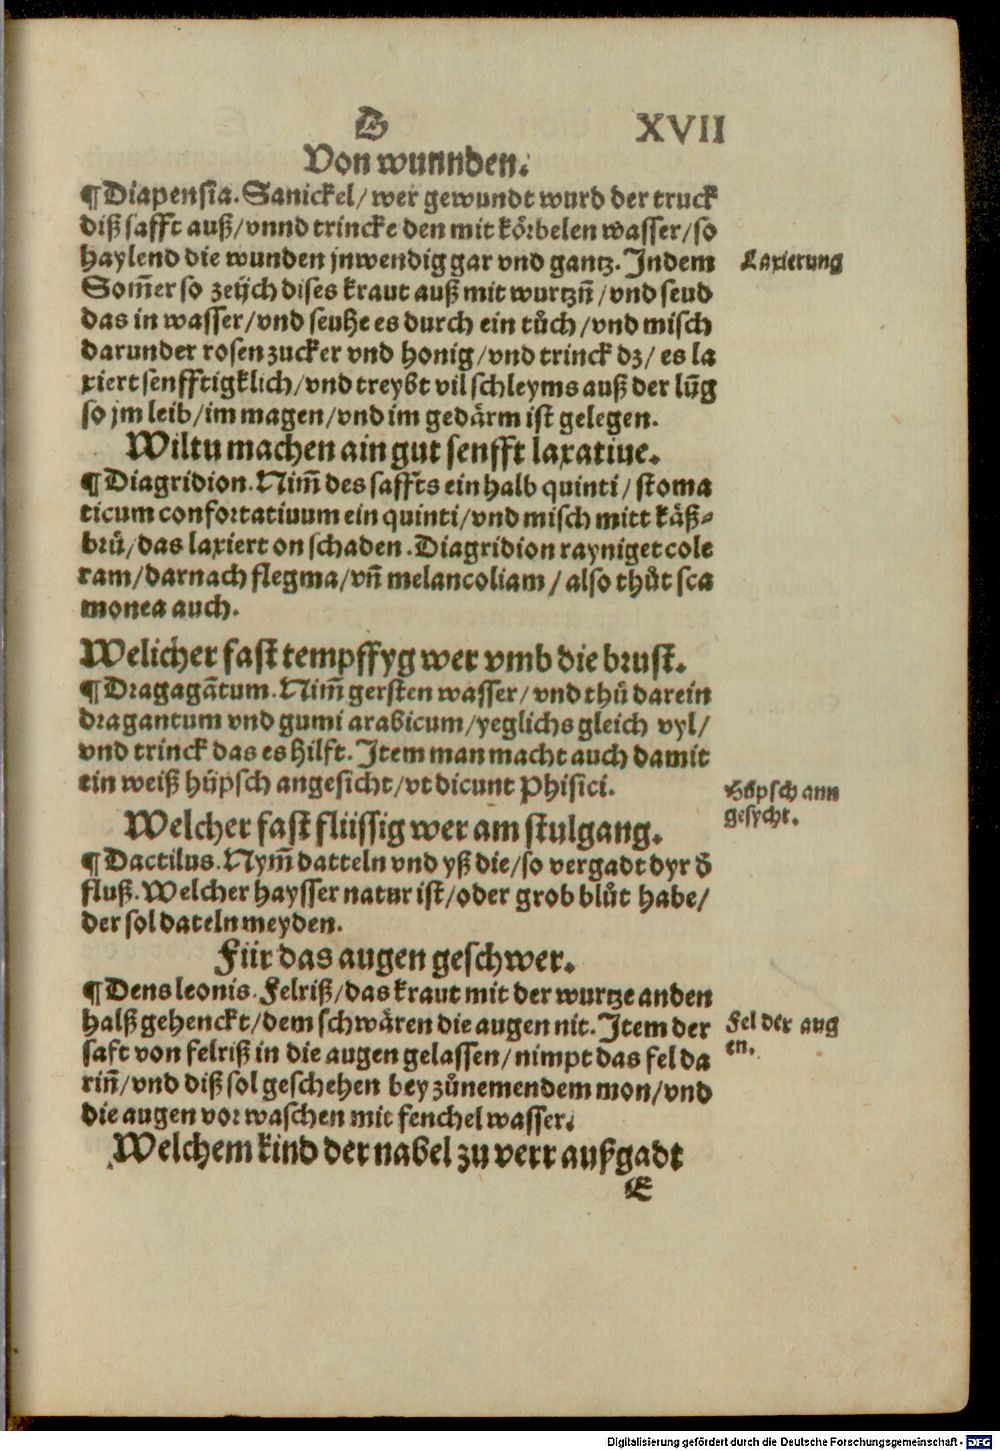 D XVII
Von wunnden.
¶Diapensia. Sanickel/ wer gewundt wurd der truck
diß safft auß/vnnd trincke den mit körbelen wasser/so
haylend die wunden jnwendig gar vnd gantz. Indem
Som̅er so zeych dises kraut auß mit wurtzn̅/vnd seud
das in wasser/vnd seuhe es durch ein tůch/vnd misch
darunder rosen zucker vnd honig/vnd trinck dz/ es la
xiert senfftigklich/vnd treybt vil schleyms auß der lūg
so jm leib/im magen/vnd im gedärm ist gelegen.
Laxierung
Wiltu machen ain gut senfft laxatiue.
¶Diagridion. Nim̅ des saffts ein halb quinti/ stoma
ticum confortatiuum ein quinti/vnd misch mitt käß⸗
brů/das laxiert on schaden. Diagridion rayniget cole
ram/darnach flegma/vn̅ melancoliam/ also thůt sca
monea auch.
Welicher fast tempffyg wer vmb die brust.
¶Dragagātum. Nim̅ gersten wasser/ vnd thů darein
dragantum vnd gumi arabicum/yeglichs gleich vyl/
vnd trinck das es hilft. Item man macht auch damit
ein weiß hüpsch angesicht/vt dicunt Phisici.
Hüpsch ann
gesycht.
Welcher fast flüssig wer am stulgang.
¶Dactilus. Nym̅ datteln vnd yß die/so vergadt dyr d̄
fluß. Welcher haysser natur ist/oder grob blůt habe/
der sol dateln meyden.
Für das augen geschwer.
¶Dens leonis. Felriß/das kraut mit der wurtze an den
halß gehenckt/dem schwären die augen nit. Item der
saft von felriß in die augen gelassen/nimpt das fel da
rin̅/vnd diß sol geschehen bey zůnemendem mon/vnd
die augen vor waschen mit fenchel wasser.
Fel der aug
en.
Welchem kind der nabel zu verr außgadt
E
Digitalisierung gefördert durch die Deutsche Forschungsgemeinschaft - DFG